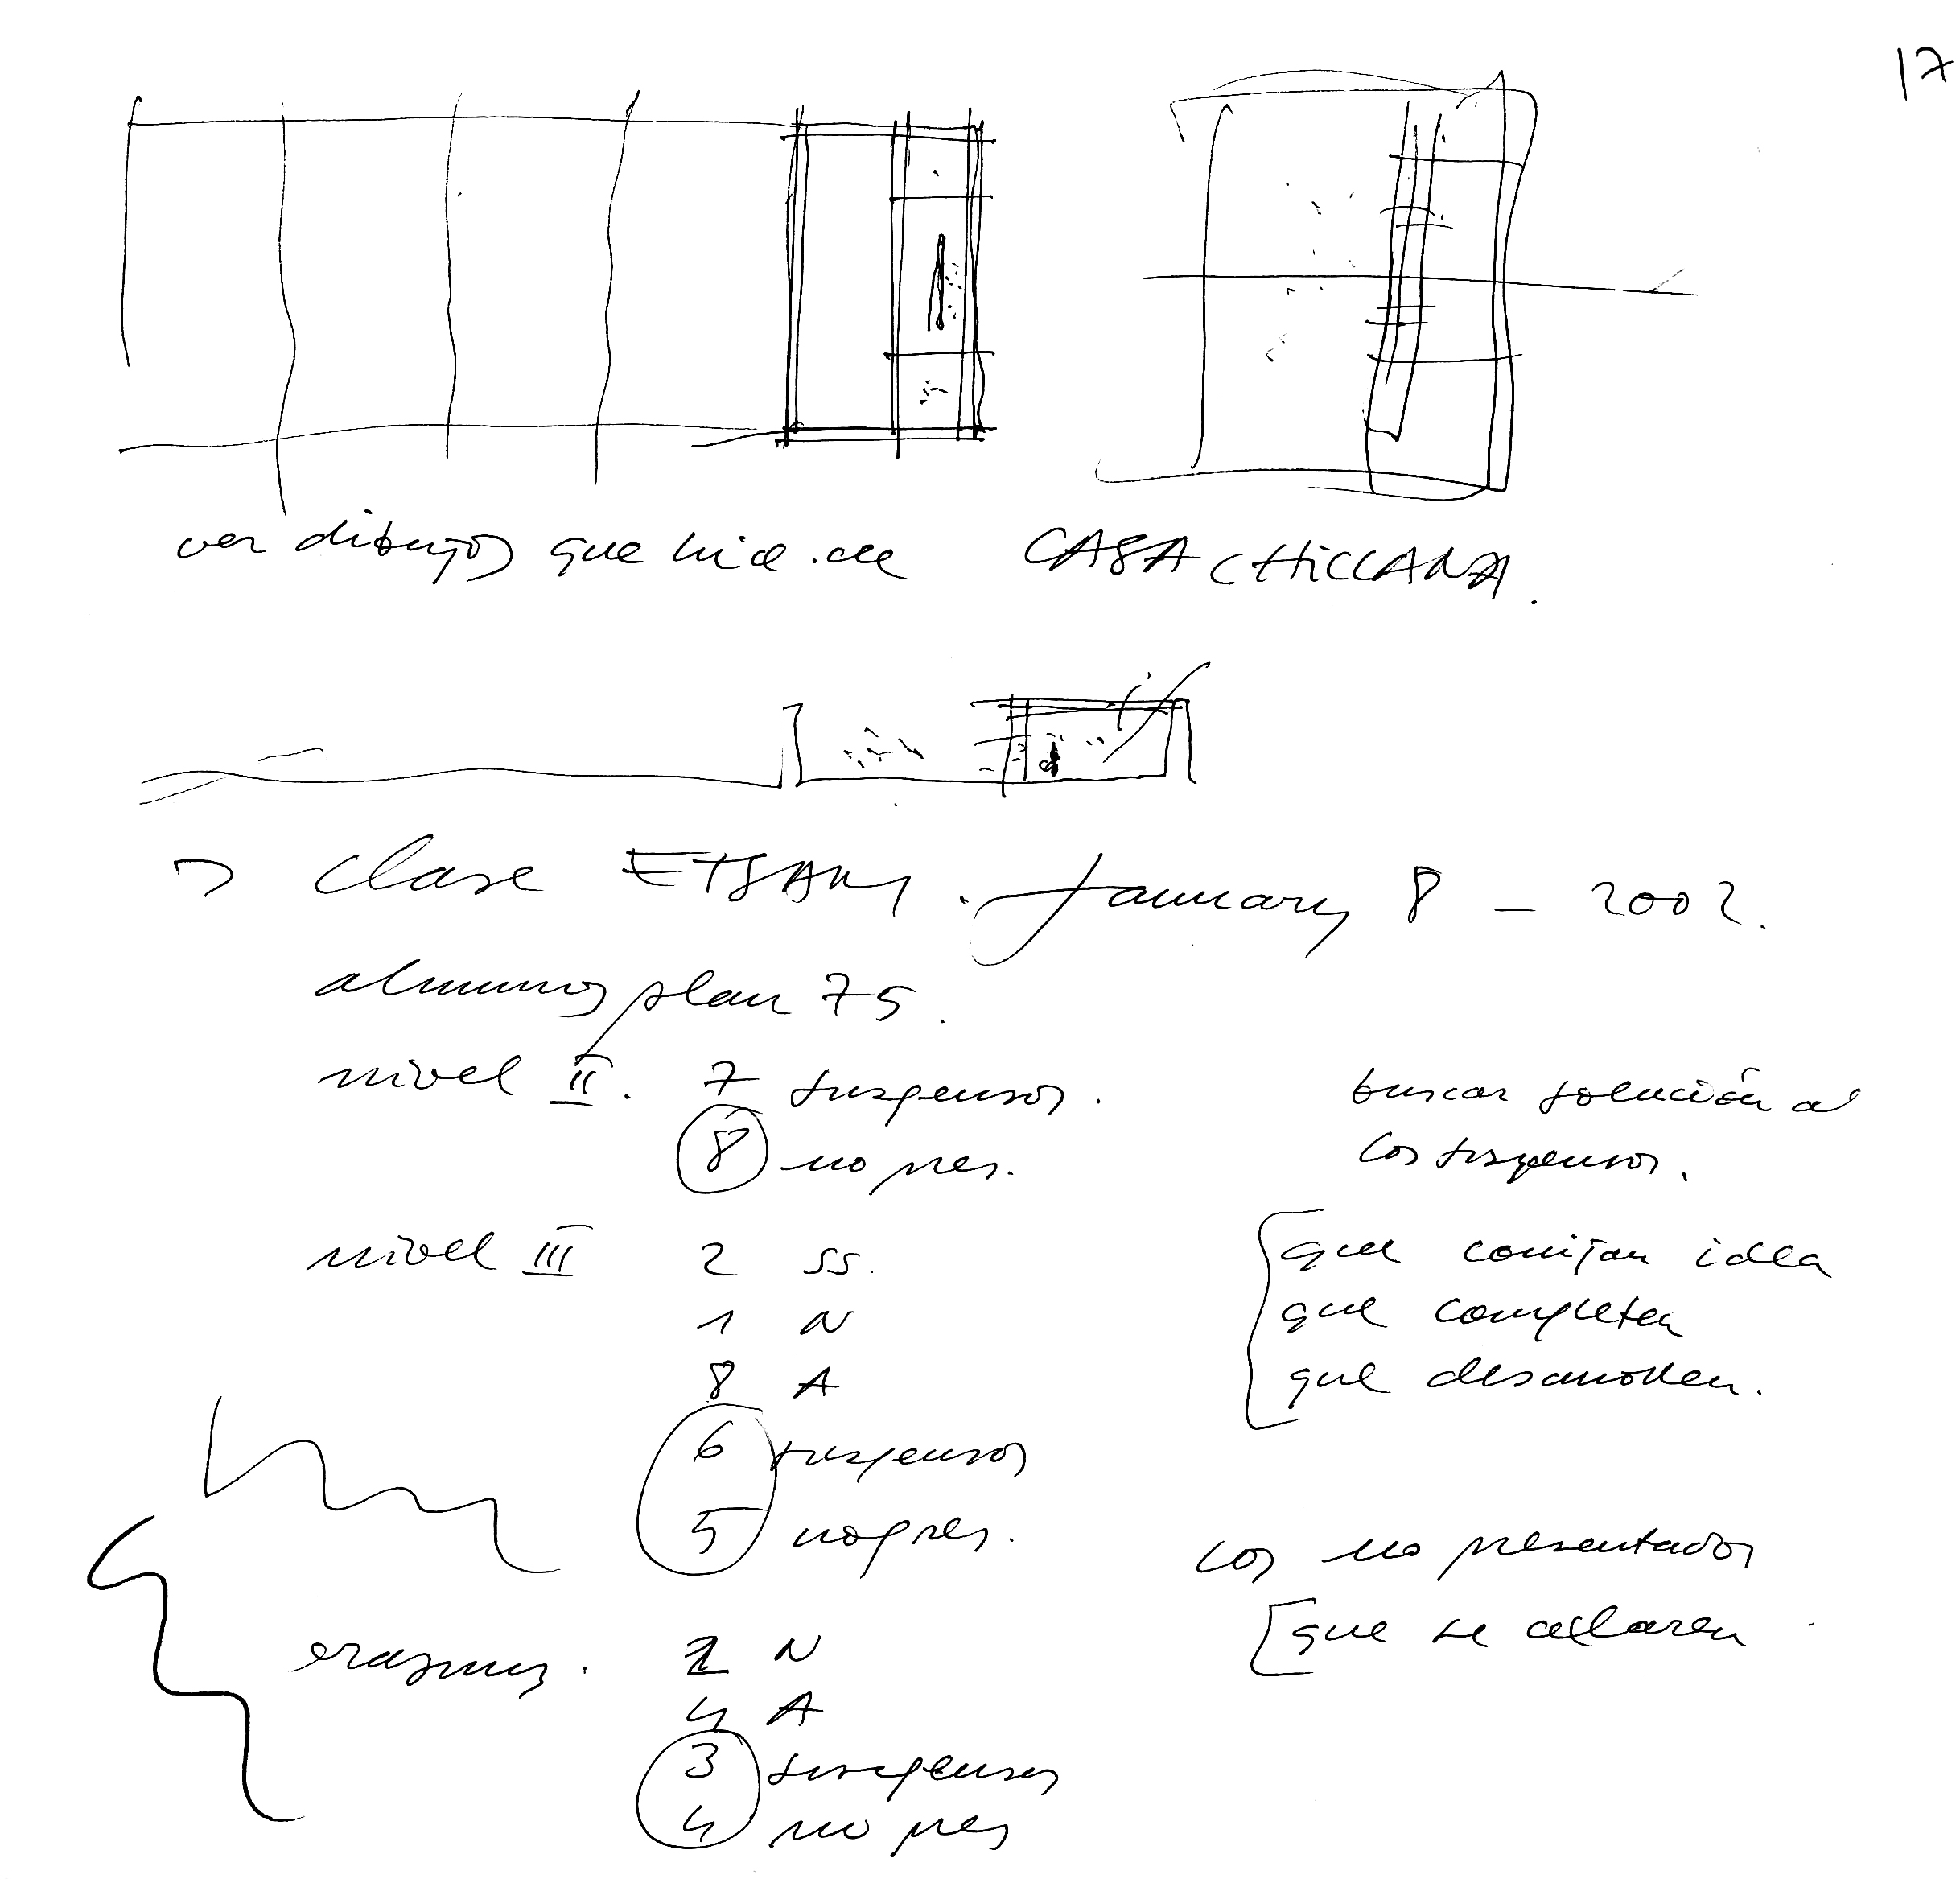 17
ver dibujos que hice de CASA CHICLANA.
clase ETSAM. January 8 - 2002.
alumnos plan 75.
nivel II. 7 suspensos.
8 no pres.
buscar solución a
los suspensos.
nivel III 2 SS.
1 N
8 A
6 suspensos
5 no pres.
que corrijan idea
que completen
que desarrollen.
los no presentados
que se aclaren
erasmus. 2 N
4 A
3 suspensos
4 no pres